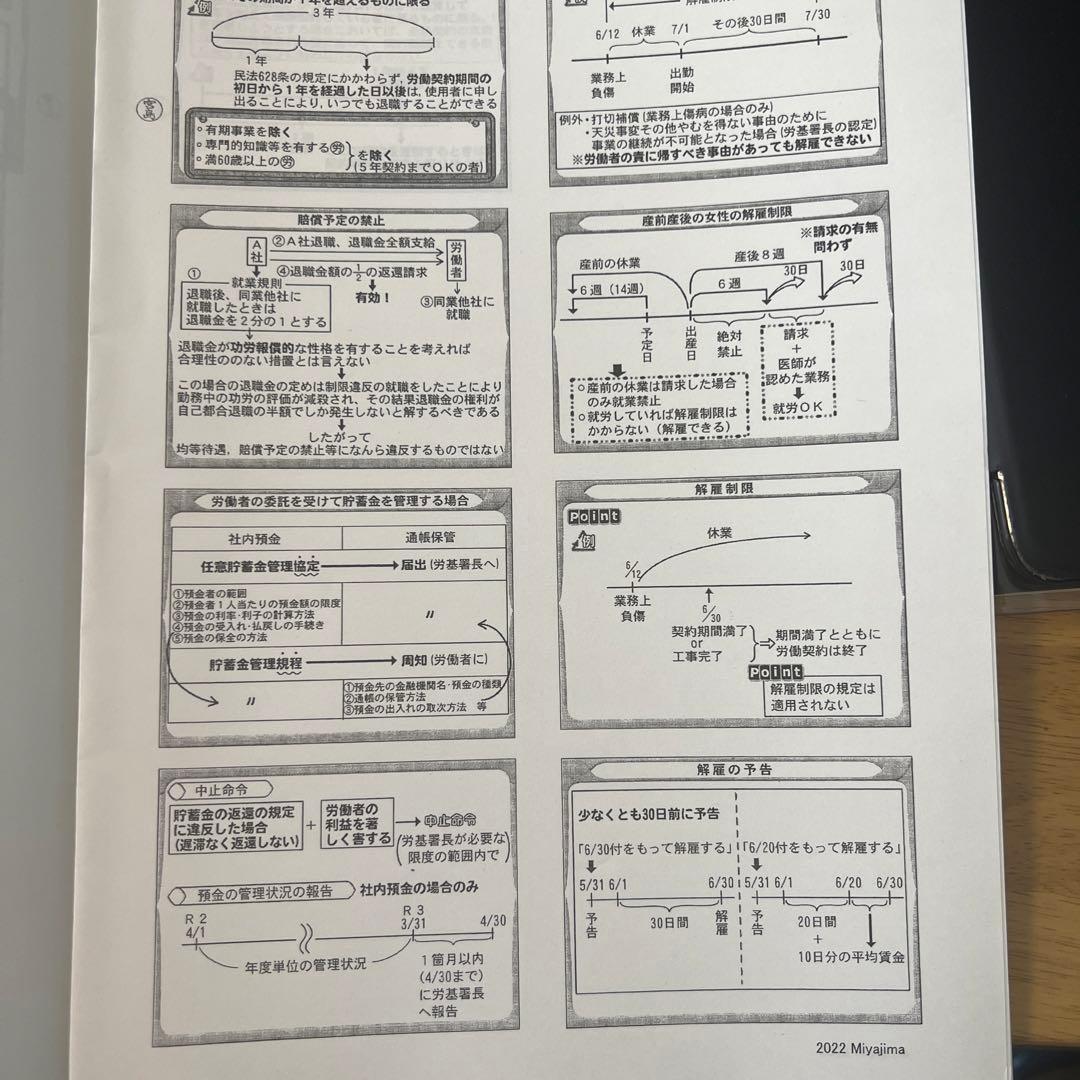 例
3年
1年
民法628条の規定にかかわらず,労働契約期間の
初日から1年を経過した日以後は,使用者に申し
出ることにより,いつでも退職することができる
宮島
○有期事業を除く
○専門的知識等を有する労
○満60歳以上の労
を除く
(5年契約までOKの者)
6/12 休業 7/1 その後30日間 7/30
業務上
負傷
出勤
開始
例外・打切補償(業務上傷病の場合のみ)
・天災事変その他やむを得ない事由のために
事業の継続が不可能となった場合(労基署長の認定)
※労働者の責に帰すべき事由があっても解雇できない
賠償予定の禁止
A社
②A社退職、退職金全額支給
労働者
①
就業規則
④退職金額の1/2の返還請求
退職後、同業他社に
就職したときは
退職金を2分の1とする
有効!
③同業他社に
就職
退職金が功労報償的な性格を有することを考えれば
合理性ののない措置とは言えない
この場合の退職金の定めは制限違反の就職をしたことにより
勤務中の功労の評価が減殺され、その結果退職金の権利が
自己都合退職の半額でしか発生しないと解するべきである
したがって
均等待遇,賠償予定の禁止等になんら違反するものではない
産前産後の女性の解雇制限
※請求の有無
問わず
産前の休業
産後8週
30日
30日
6週(14週)
6週
予定日
出産日
絶対
禁止
請求
+
医師が
認めた業務
就労OK
○産前の休業は請求した場合
のみ就業禁止
○就労していれば解雇制限は
かからない(解雇できる)
労働者の委託を受けて貯蓄金を管理する場合
社内預金 通帳保管
任意貯蓄金管理協定 届出(労基署長へ)
①預金者の範囲
②預金者1人当たりの預金額の限度
③預金の利率・利子の計算方法
④預金の受入れ・払戻しの手続き
⑤預金の保全の方法
〃
貯蓄金管理規程 周知(労働者に)
〃
①預金先の金融機関名・預金の種類
②通帳の保管方法
③預金の出入れの取次方法 等
解雇制限
Point
例
休業
6/12
業務上
負傷
6/30
契約期間満了
or
工事完了
期間満了とともに
労働契約は終了
Point
解雇制限の規定は
適用されない
中止命令
貯蓄金の返還の規定
に違反した場合
(遅滞なく返還しない)
+
労働者の
利益を著
しく害する
中止命令
(労基署長が必要な
限度の範囲内で)
預金の管理状況の報告 社内預金の場合のみ
R2
4/1
R3
3/31
4/30
年度単位の管理状況
1箇月以内
(4/30まで)
に労基署長
へ報告
解雇の予告
少なくとも30日前に予告
「6/30付をもって解雇する」
5/31 6/1 6/30
予告
30日間
解雇
「6/20付をもって解雇する」
5/31 6/1 6/20 6/30
予告
20日間
+
10日分の平均賃金
2022 Miyajima